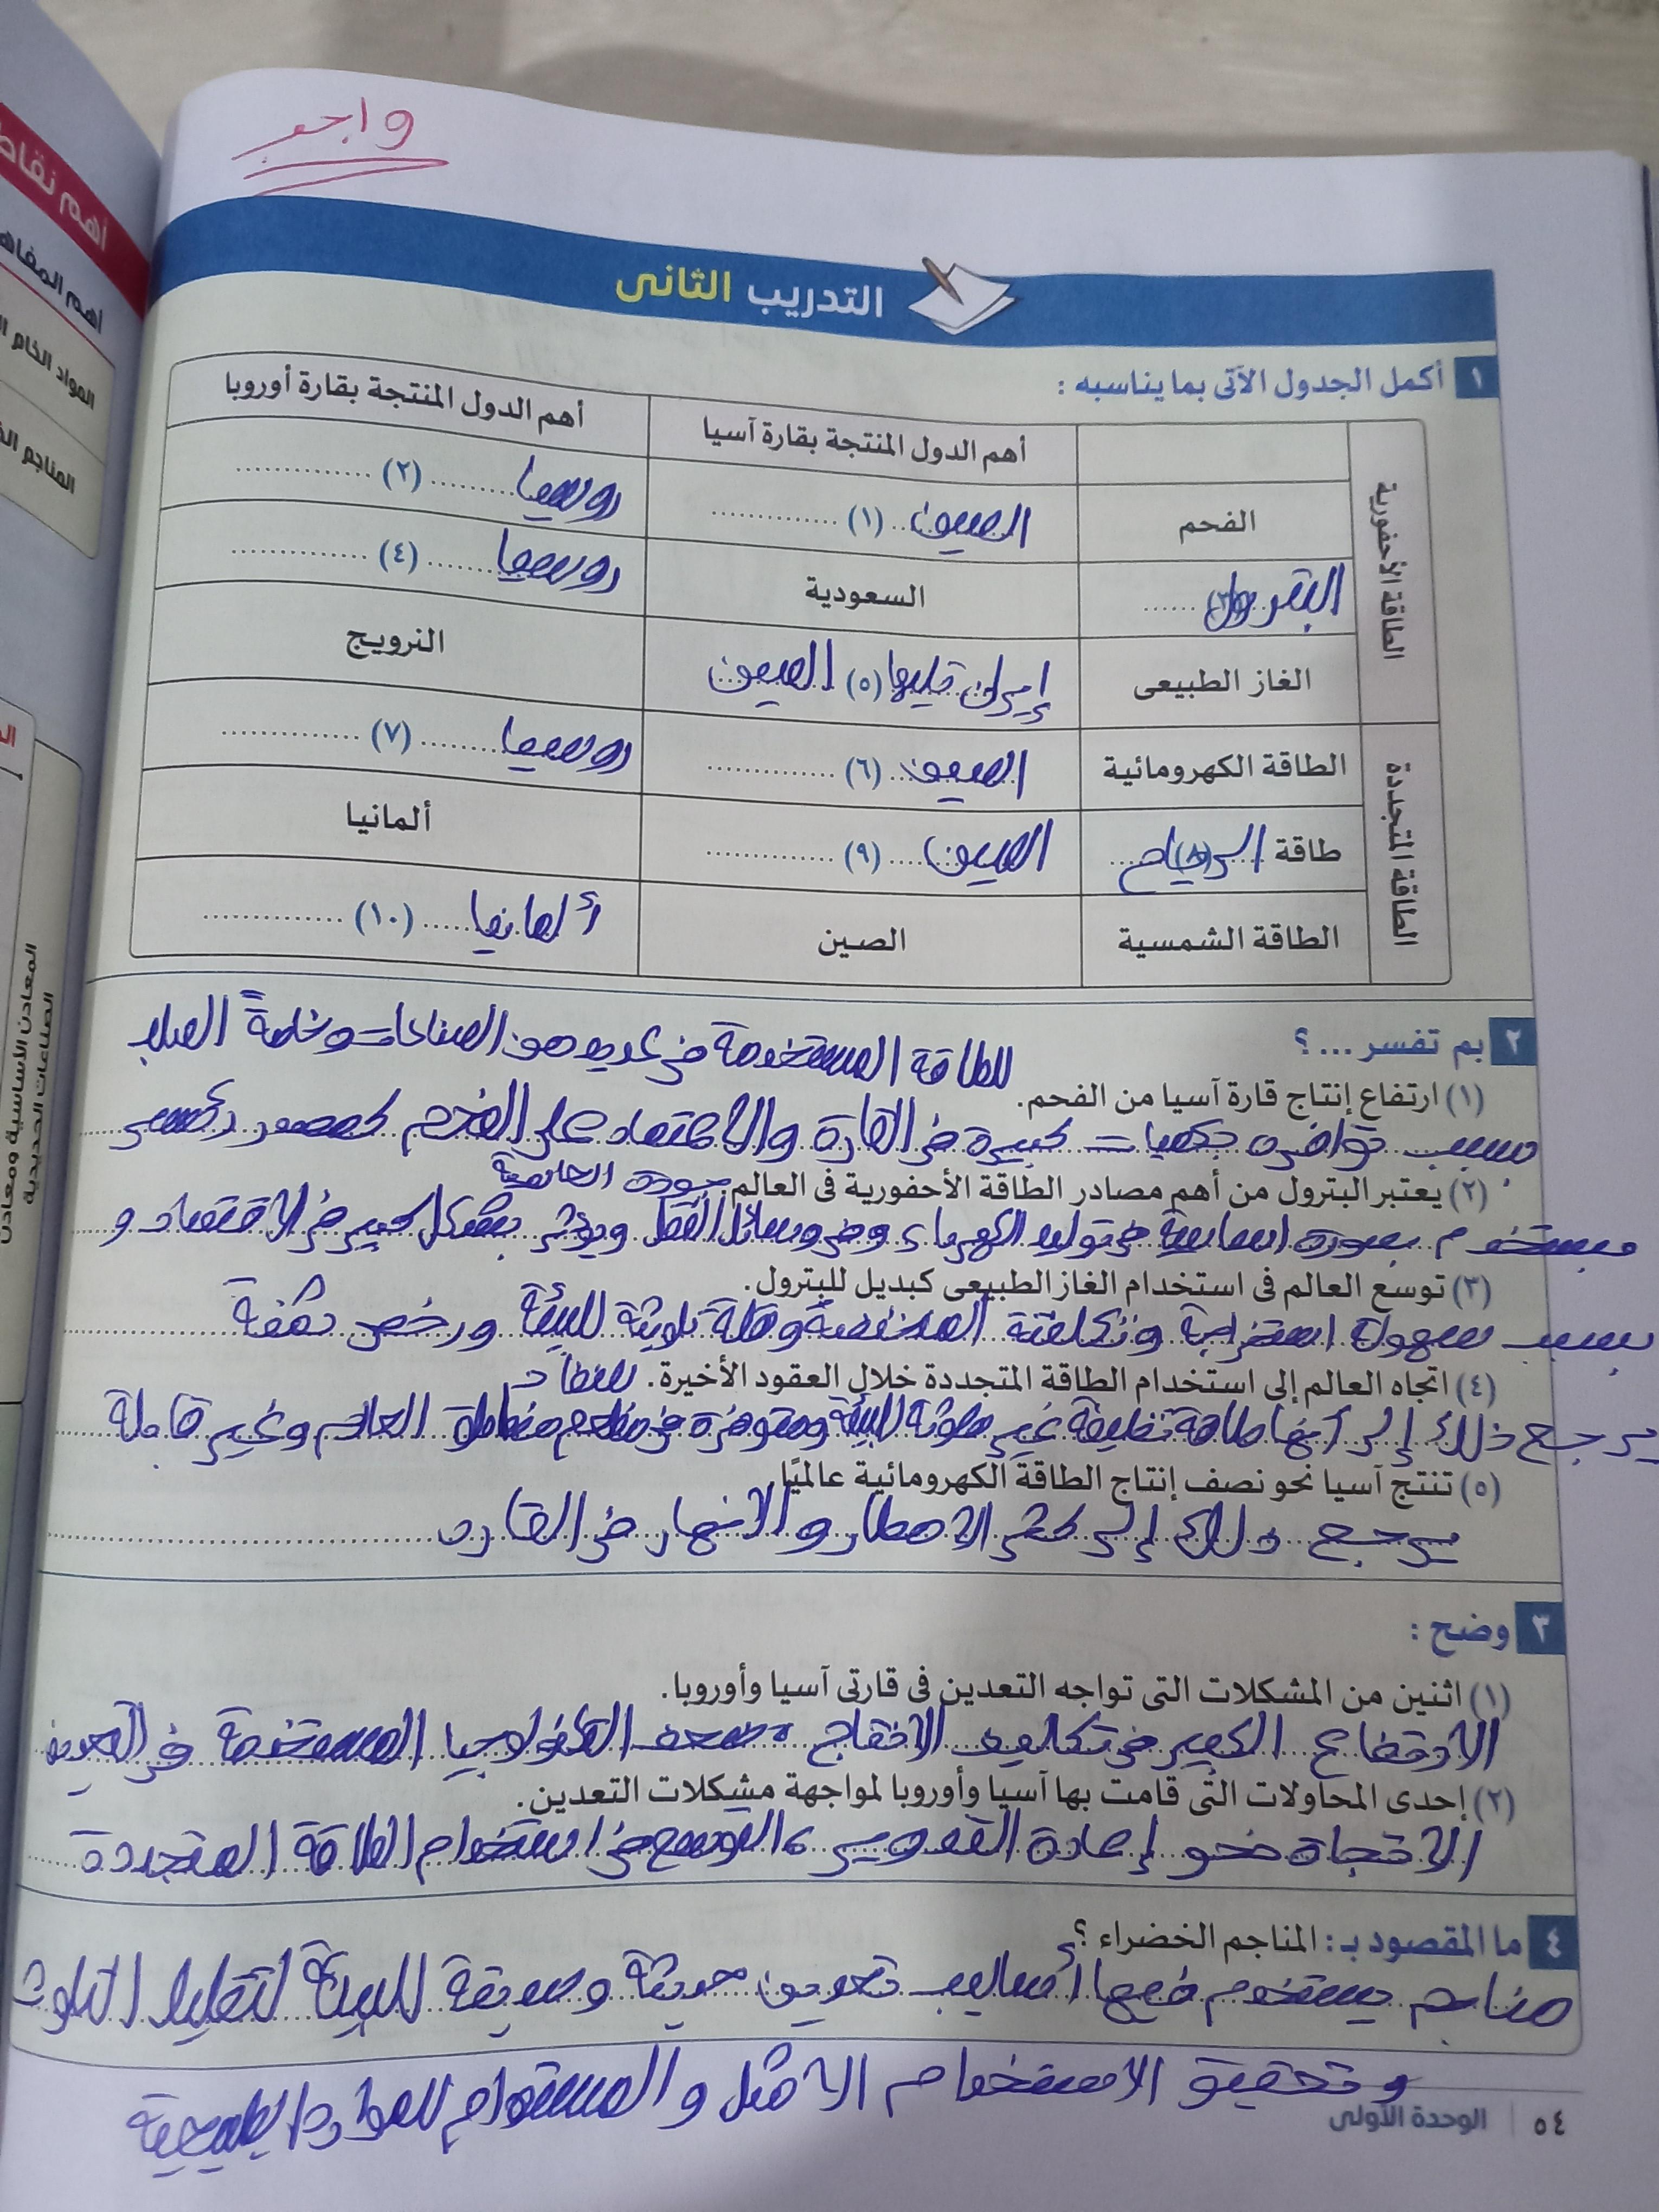 واجب
التدريب الثانى
١ أكمل الجدول الآتى بما يناسبه :
أهم الدول المنتجة بقارة آسيا
أهم الدول المنتجة بقارة أوروبا
الطاقة الأحفورية
الفحم
الصين (١)
روسيا (٢)
البترول (٣)
السعودية
روسيا (٤)
الغاز الطبيعى
إيران تليها (٥) الصين
النرويج
الطاقة المتجددة
الطاقة الكهرومائية
الصين (٦)
روسيا (٧)
طاقة الرياح (٨)
الصين (٩)
ألمانيا
الطاقة الشمسية
الصين
ألمانيا (١٠)
٢ بم تفسر ... ؟
للطاقة المستخدمة فى عديد من الصناعات وخاصةً الصلب
(١) ارتفاع إنتاج قارة آسيا من الفحم.
بسبب توافره بكميات كبيرة فى القارة والاعتماد على الفحم كمصدر رئيسى
(٢) يعتبر البترول من أهم مصادر الطاقة الأحفورية فى العالم.
يستخدم بصورة اساسية فى توليد الكهرباء وفى وسائل النقل ويؤثر بشكل كبير فى الاقتصاد و
(٣) توسع العالم فى استخدام الغاز الطبيعى كبديل للبترول.
بسبب سهولة استخراجة وتكلفتة المنخفضة وقلة تلويثة للبيئة ورخص
(٤) اتجاه العالم إلى استخدام الطاقة المتجددة خلال العقود الأخيرة.
للنفاد
يرجع ذلك إلى أنها طاقة نظيفة غير ملوثة للبيئة ومتوفرة فى معظم مناطق العالم وغير قابلة
(٥) تنتج آسيا نحو نصف إنتاج الطاقة الكهرومائية عالميًا.
يرجع ذلك إلى كثر الامطار والانهار فى القاره
٣ وضح :
(١) اثنين من المشكلات التى تواجه التعدين فى قارتى آسيا وأوروبا.
الارتفاع الكبير فى تكاليف الانتاج، ضعف التكنولوجيا المستخدمة فى التعدين
(٢) إحدى المحاولات التى قامت بها آسيا وأوروبا لمواجهة مشكلات التعدين.
الاتجاة نحو إعادة التدوير، التوسع فى استخدام الطاقة المتجددة
٤ ما المقصود بـ : المناجم الخضراء ؟
مناجم يستخدم فيها أساليب تعدين حديثة وصديقة للبيئة لتقليل التلوث
وتحقيق الاستخدام الامثل والمستدام للموارد الطبيعية
٥٤ | الوحدة الأولى
أهم نقاط
المواد الخام